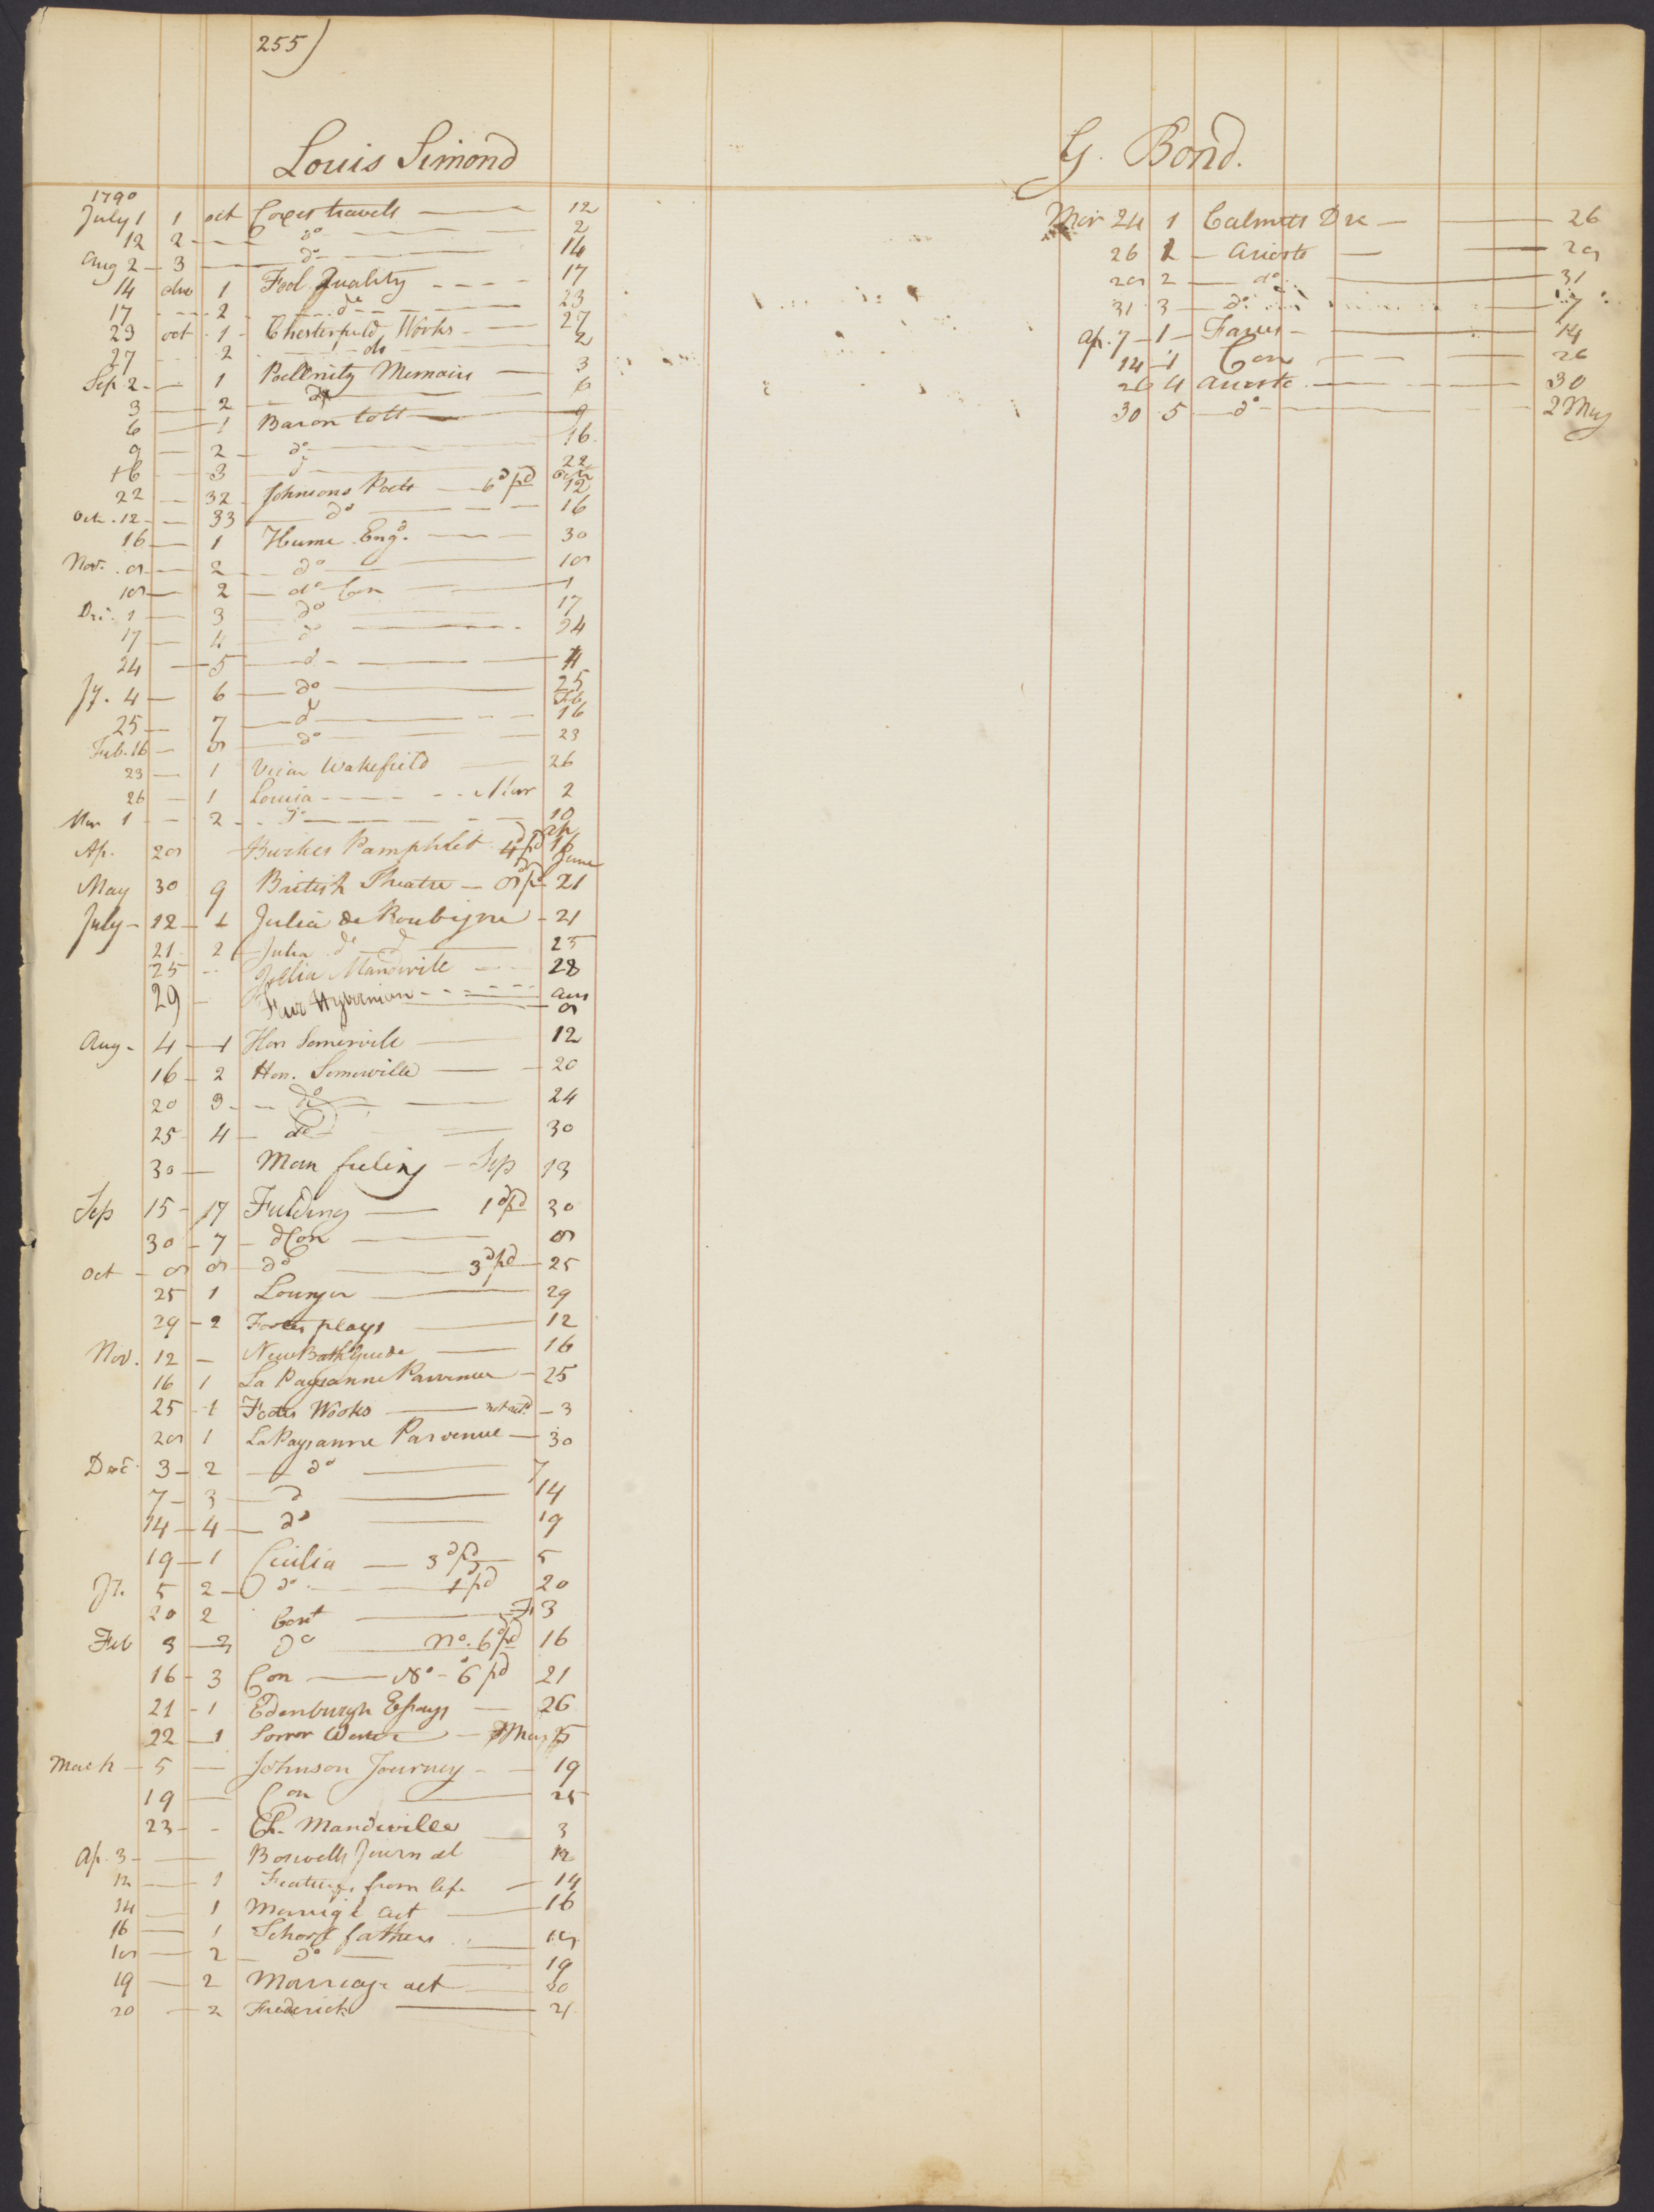 255)
Louis Simond
1790
July 1 1 oct Coxes travels 12
12 2 do 2
Aug 2 3 do 14
14 duo 1 Fool Quality 17
17 2 do 23
23 oct 1 Chesterfield Works 27
27 2 do 2
Sep 2 1 Pollnitz Memoirs 3
3 2 do 6
6 1 Baron tott 9
9 2 do 16
16 3 d 22
22 32 Johnsons Poets 6d pd Octr 12
Oct. 12 33 do 16
16 1 Hume Engd. 30
Nov. 8 2 do 18
18 2 do Con 1
Dec. 1 3 do 17
17 4 d 24
24 5 d 4
Jy. 4 6 do 25
25 7 d Feb 16
Feb. 16 8 do 23
23 1 Vicar Wakefield 26
26 1 Louisa Mar 2
Mar 1 2 do 10
Ap. 28 Burkes Pamphlet 4d pd 16
May 30 9 British Theatre 8d pd June 21
July 12 1 Julia de Roubigne 21
21 2 Julia de d 25
25 Julia Mandevile 28
29 Fair Hybernian Aus 8
Aug 4 1 Hon Somervile 12
16 2 Hon. Somerville 20
20 3 do 24
25 4 do 30
30 Man feeling Sep 13
Sep 15 17 Fielding 1d pd 30
30 7 d Con 8
Oct 8 8 do 3d pd 25
25 1 Lounger 29
29 2 Footes plays 12
Nov. 12 New Bath Guide 16
16 1 La Paysanne Parvenue 25
25 1 Footes Wooks 3
28 1 La Paysanne Parvenue 30
Dec. 3 2 do 7
7 3 d 14
14 4 do 19
19 1 Cicilia 3d pd 5
Jy. 5 2 do 1 pd 20
20 2 Cont F 3
Feb 3 3 do no. 6d pd 16
16 3 Con No 6 pd 21
21 1 Edenburgh Essays 26
22 1 Sorror Werter Mar 5
Mach 5 Johnson Journey 19
19 Con 25
23 Ch. Mandeville 3
Ap. 3 Boswells Journal 12
12 1 Featurs from life 14
14 1 Marrige act 16
16 1 School fathers 18
18 2 do 19
19 2 Marriage act 20
20 2 Frederick 21
G. Bond.
Mar 24 1 Calmets Dic 26
26 1 Ariosto 28
28 2 do 31
31 3 do 7
Ap. 7 1 14
14 1 Con 26
26 4 Ariosto 30
30 5 do 2 May